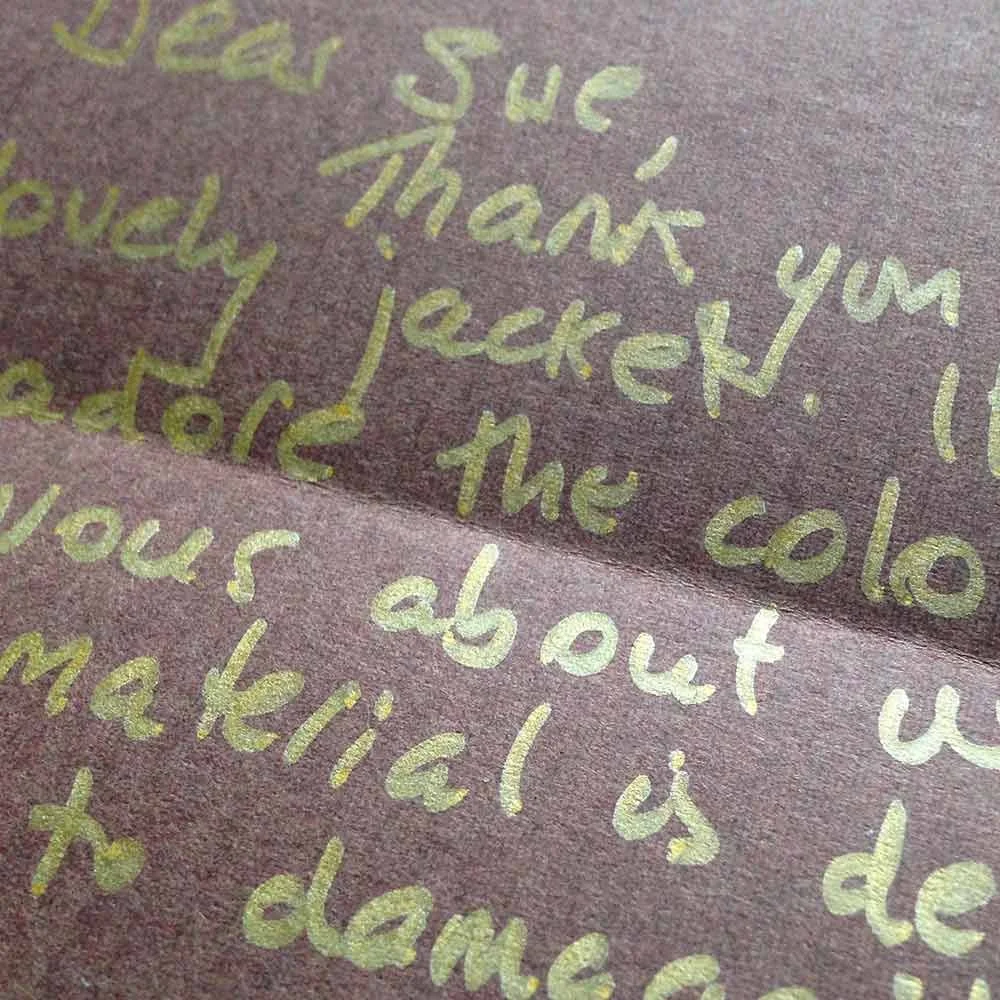 Dear Sue,
Thank you
lovely jacket. It
adore the colo
vous about w
material is de
to damag